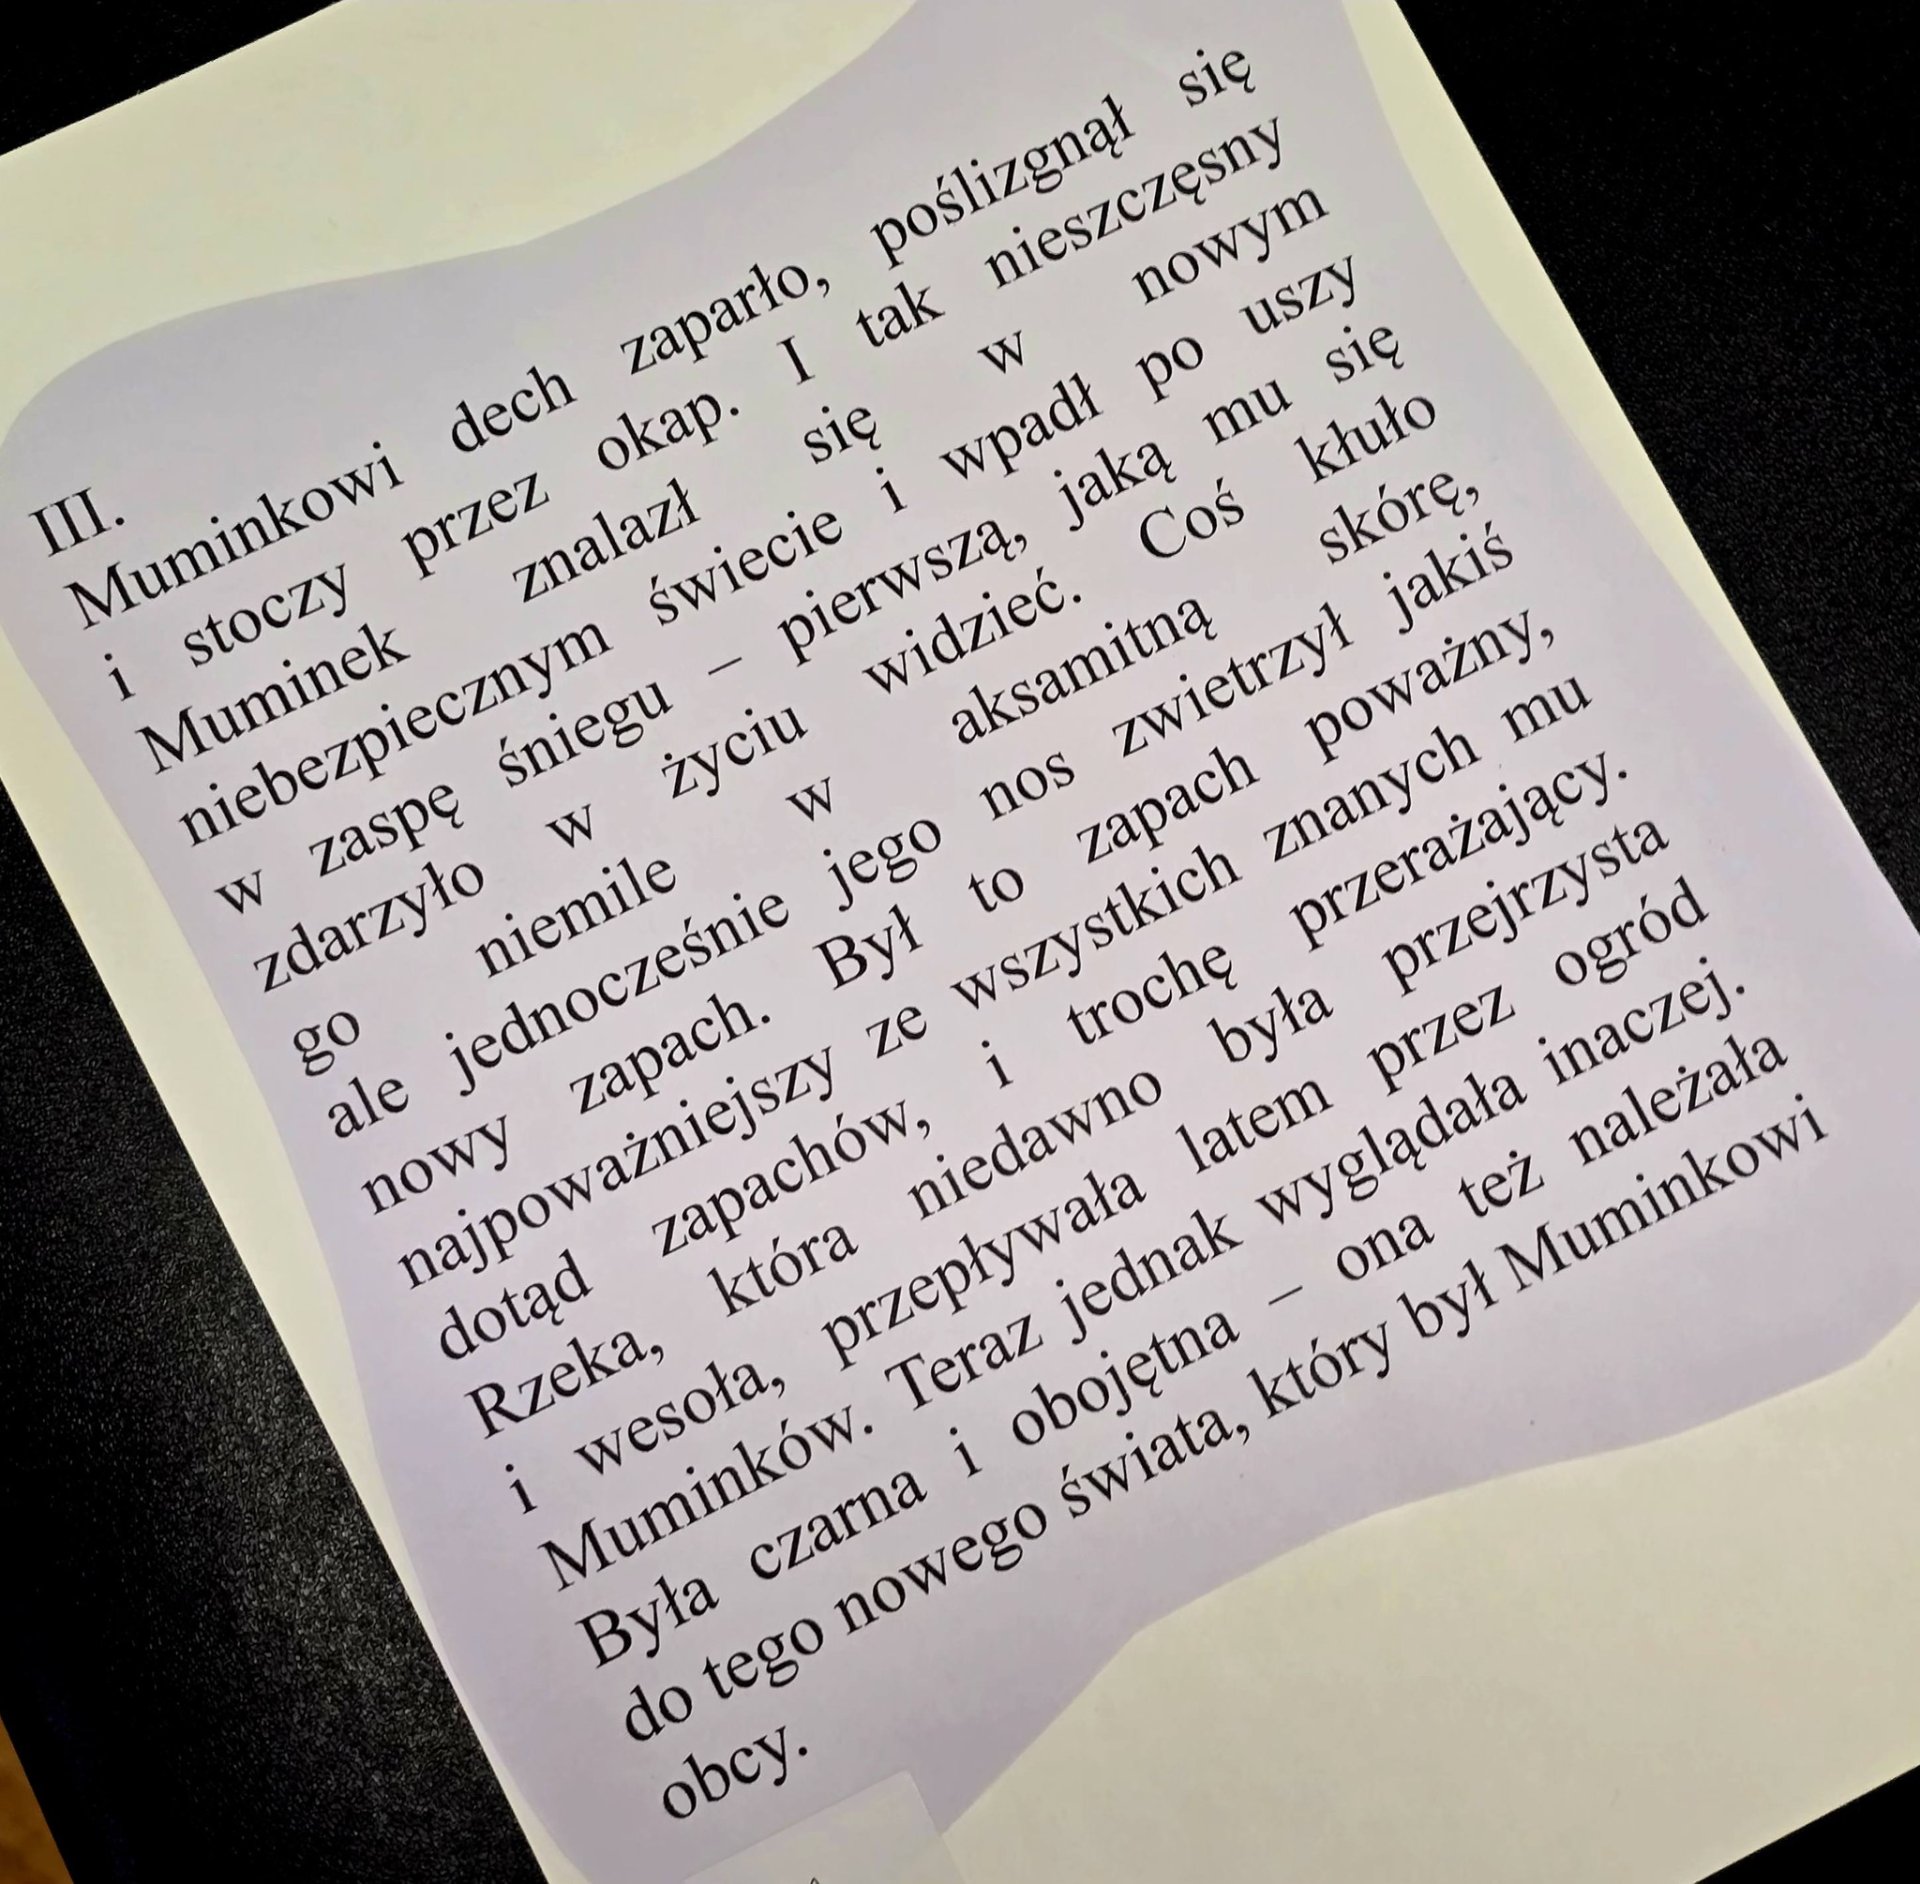 III.
Muminkowi dech zaparło, poślizgnął się
i stoczy przez okap. I tak nieszczęsny
Muminek znalazł się w nowym
niebezpiecznym świecie i wpadł po uszy
w zaspę śniegu – pierwszą, jaką mu się
zdarzyło w życiu widzieć. Coś kłuło
go niemile w aksamitną skórę,
ale jednocześnie jego nos zwietrzył jakiś
nowy zapach. Był to zapach poważny,
najpoważniejszy ze wszystkich znanych mu
dotąd zapachów, i trochę przerażający.
Rzeka, która niedawno była przejrzysta
i wesoła, przepływała latem przez ogród
Muminków. Teraz jednak wyglądała inaczej.
Była czarna i obojętna – ona też należała
do tego nowego świata, który był Muminkowi
obcy.